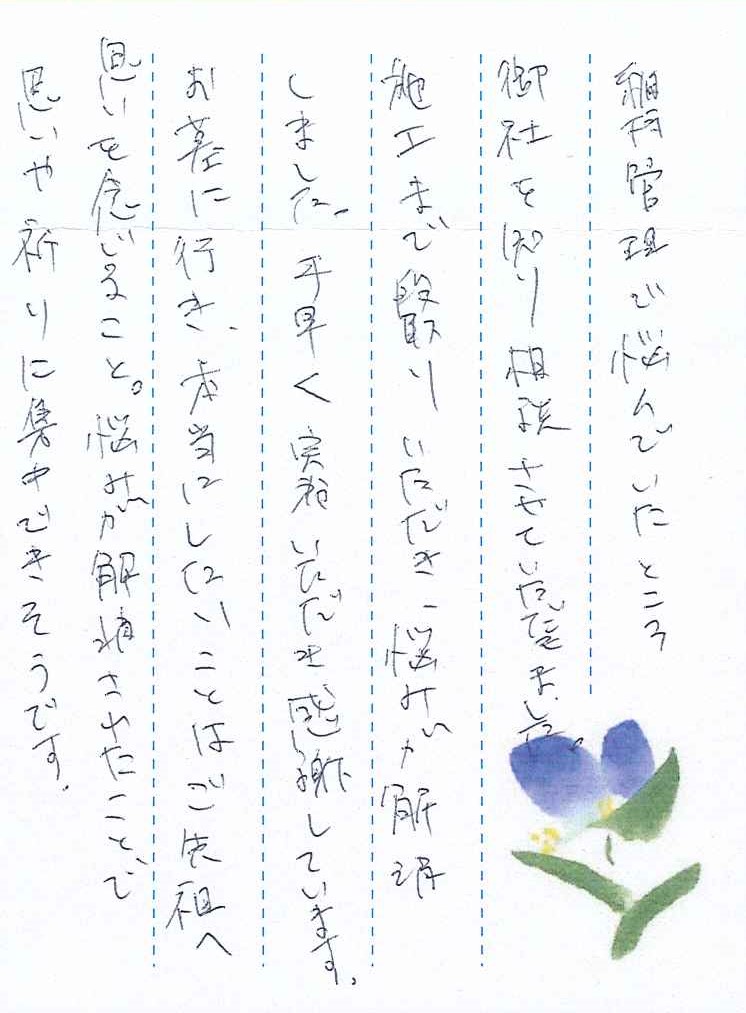 維持管理で悩んでいたところ
御社を知り相談させていただきました。
施工まで段取りいただき、悩みが解消
しました。手早く実施いただき感謝しています。
お墓に行き、本当にしたいことはご先祖へ
思いを念じること。悩みが解消されたことで、
思いや祈りに集中できそうです。